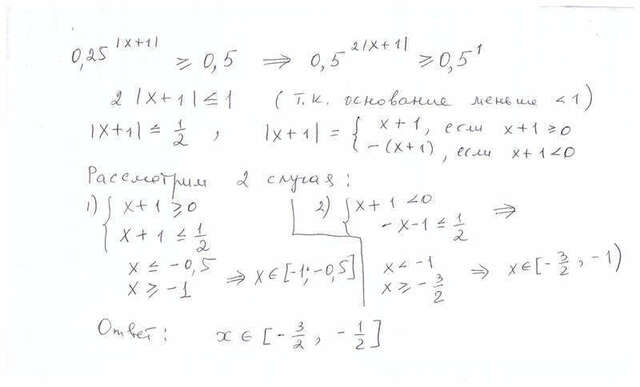 0,25^|x+1| ≥ 0,5 ⟹ 0,5^2|x+1| ≥ 0,5^1
2|x+1| ≤ 1 (т.к. основание меньше <1)
|x+1| ≤ 1/2 , |x+1| = { x+1, если x+1 ≥ 0
-(x+1), если x+1 < 0
Рассмотрим 2 случая:
1) { x+1 ≥ 0
x+1 ≤ 1/2
x ≤ -0,5
x ≥ -1 ⟹ x ∈ [-1; -0,5]
2) { x+1 < 0
-x-1 ≤ 1/2 ⟹
x < -1
x ≥ -3/2 ⟹ x ∈ [-3/2, -1)
Ответ: x ∈ [-3/2, -1/2]